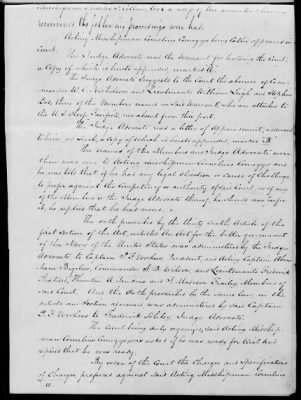 Midshipman Charles F. Fleming, took a
recommenced the following proceedings were had:
Acting Midshipman Cornelius Comegys being called appeared in
Court.
The Judge Advocate read the warrant for holding the Court,
a copy of which is hereto appended marked A.
The Judge Advocate suggests to the Court the absence of Com-
mander W. C. Nicholson and Lieutenants William Leigh and Stephen
three of the Members named in said warrant, who are attached to
the U. S. Sloop and absent from this port.
The Judge Advocate read a letter of Appointment, addressed
to him as such, a copy of which is hereto appended, marked B.
The names of the Members and Judge Advocate were
then read over to Acting Midshipman Cornelius Comegys and
he was told that if he has any legal objection or cause of Challenge
to prefer against the Competency or authority of said Court, or of any
of the Members or the Judge Advocate thereof, he should now prefer
it, he replies that he has none.
The oath prescribed by the thirty sixth Article of the
first Section of the Act entitled An Act for the better government
of the Navy of the United States was administered by the Judge
Advocate to Captain P. F. Voorhees President, and Acting Captain
Bigelow, Commander S. B. Wilson, and Lieutenants Frederick
Thornton A. Jenkins and P. Members of
said Court. And the Oath prescribed by the same law, in the
article and Section aforesaid was administered by said Captain
P. F. Voorhees to Frederick Judge Advocate.
The Court being duly organized, said Acting Midship-
man Cornelius Comegys was asked if he was ready for trial and
replies that he was ready.
By order of the Court the Charges and Specifications
of Charges preferred against said Acting Midshipman Cornelius